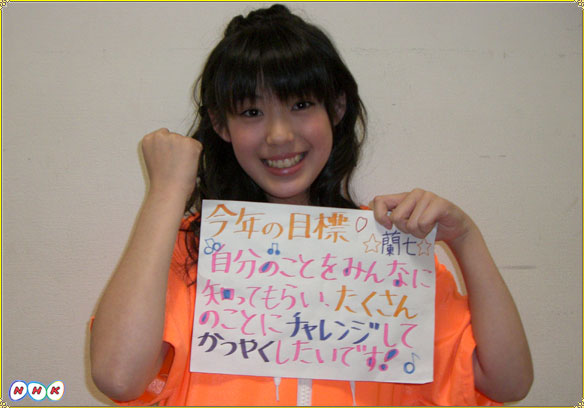 今年の目標
☆蘭七☆
自分のことをみんなに
知ってもらい、たくさん
のことにチャレンジして
かつやくしたいです!
NHK